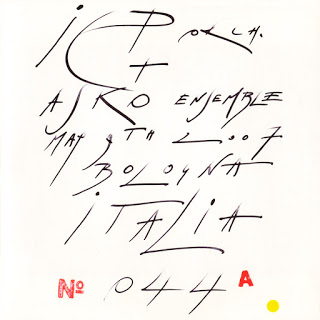 iCP ORCH.
+
ASKO ENSEMBLE
MAY 9TH 2007
BOLOGNA
iTALiA
Nº 044 A